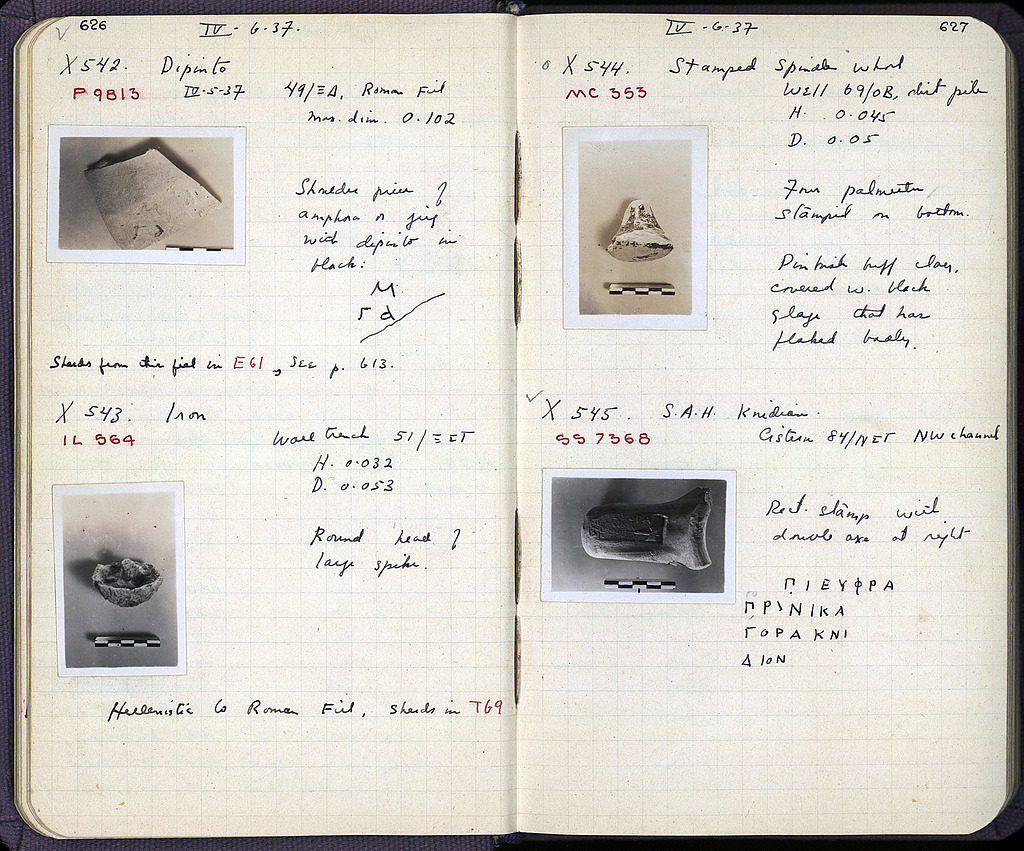 626
IV-6-37.
X 542. Dipinto
P 9813 IV-5-37 49/ΞΔ, Roman Fill
max. dim. 0.102
Shoulder piece of
amphora or jug
with dipinto in
black:
M
Γ d
Sherds from this fill in E61, SEE p. 613.
X 543. Iron
IL 564
Wall trench 51/ΞΣΤ
H. 0.032
D. 0.053
Round head of
large spike.
Hellenistic to Roman Fill, sherds in T69
IV-6-37
627
X 544. Stamped Spindle whorl
MC 353 Well 69/OB, dirt pile
H. 0.045
D. 0.05
Four palmettes
stamped on bottom.
Pinkish buff clay,
covered w. black
glaze that has
flaked badly.
X 545. S.A.H. Knidian.
SS 7368 Cistern 84/ΝΣΤ NW channel
Rect. stamp with
double axe at right
ΠΙΕΥΦΡΑ
ΠΡ\ΝΙΚΑ
ΓΟΡΑ ΚΝΙ
ΔΙΟΝ